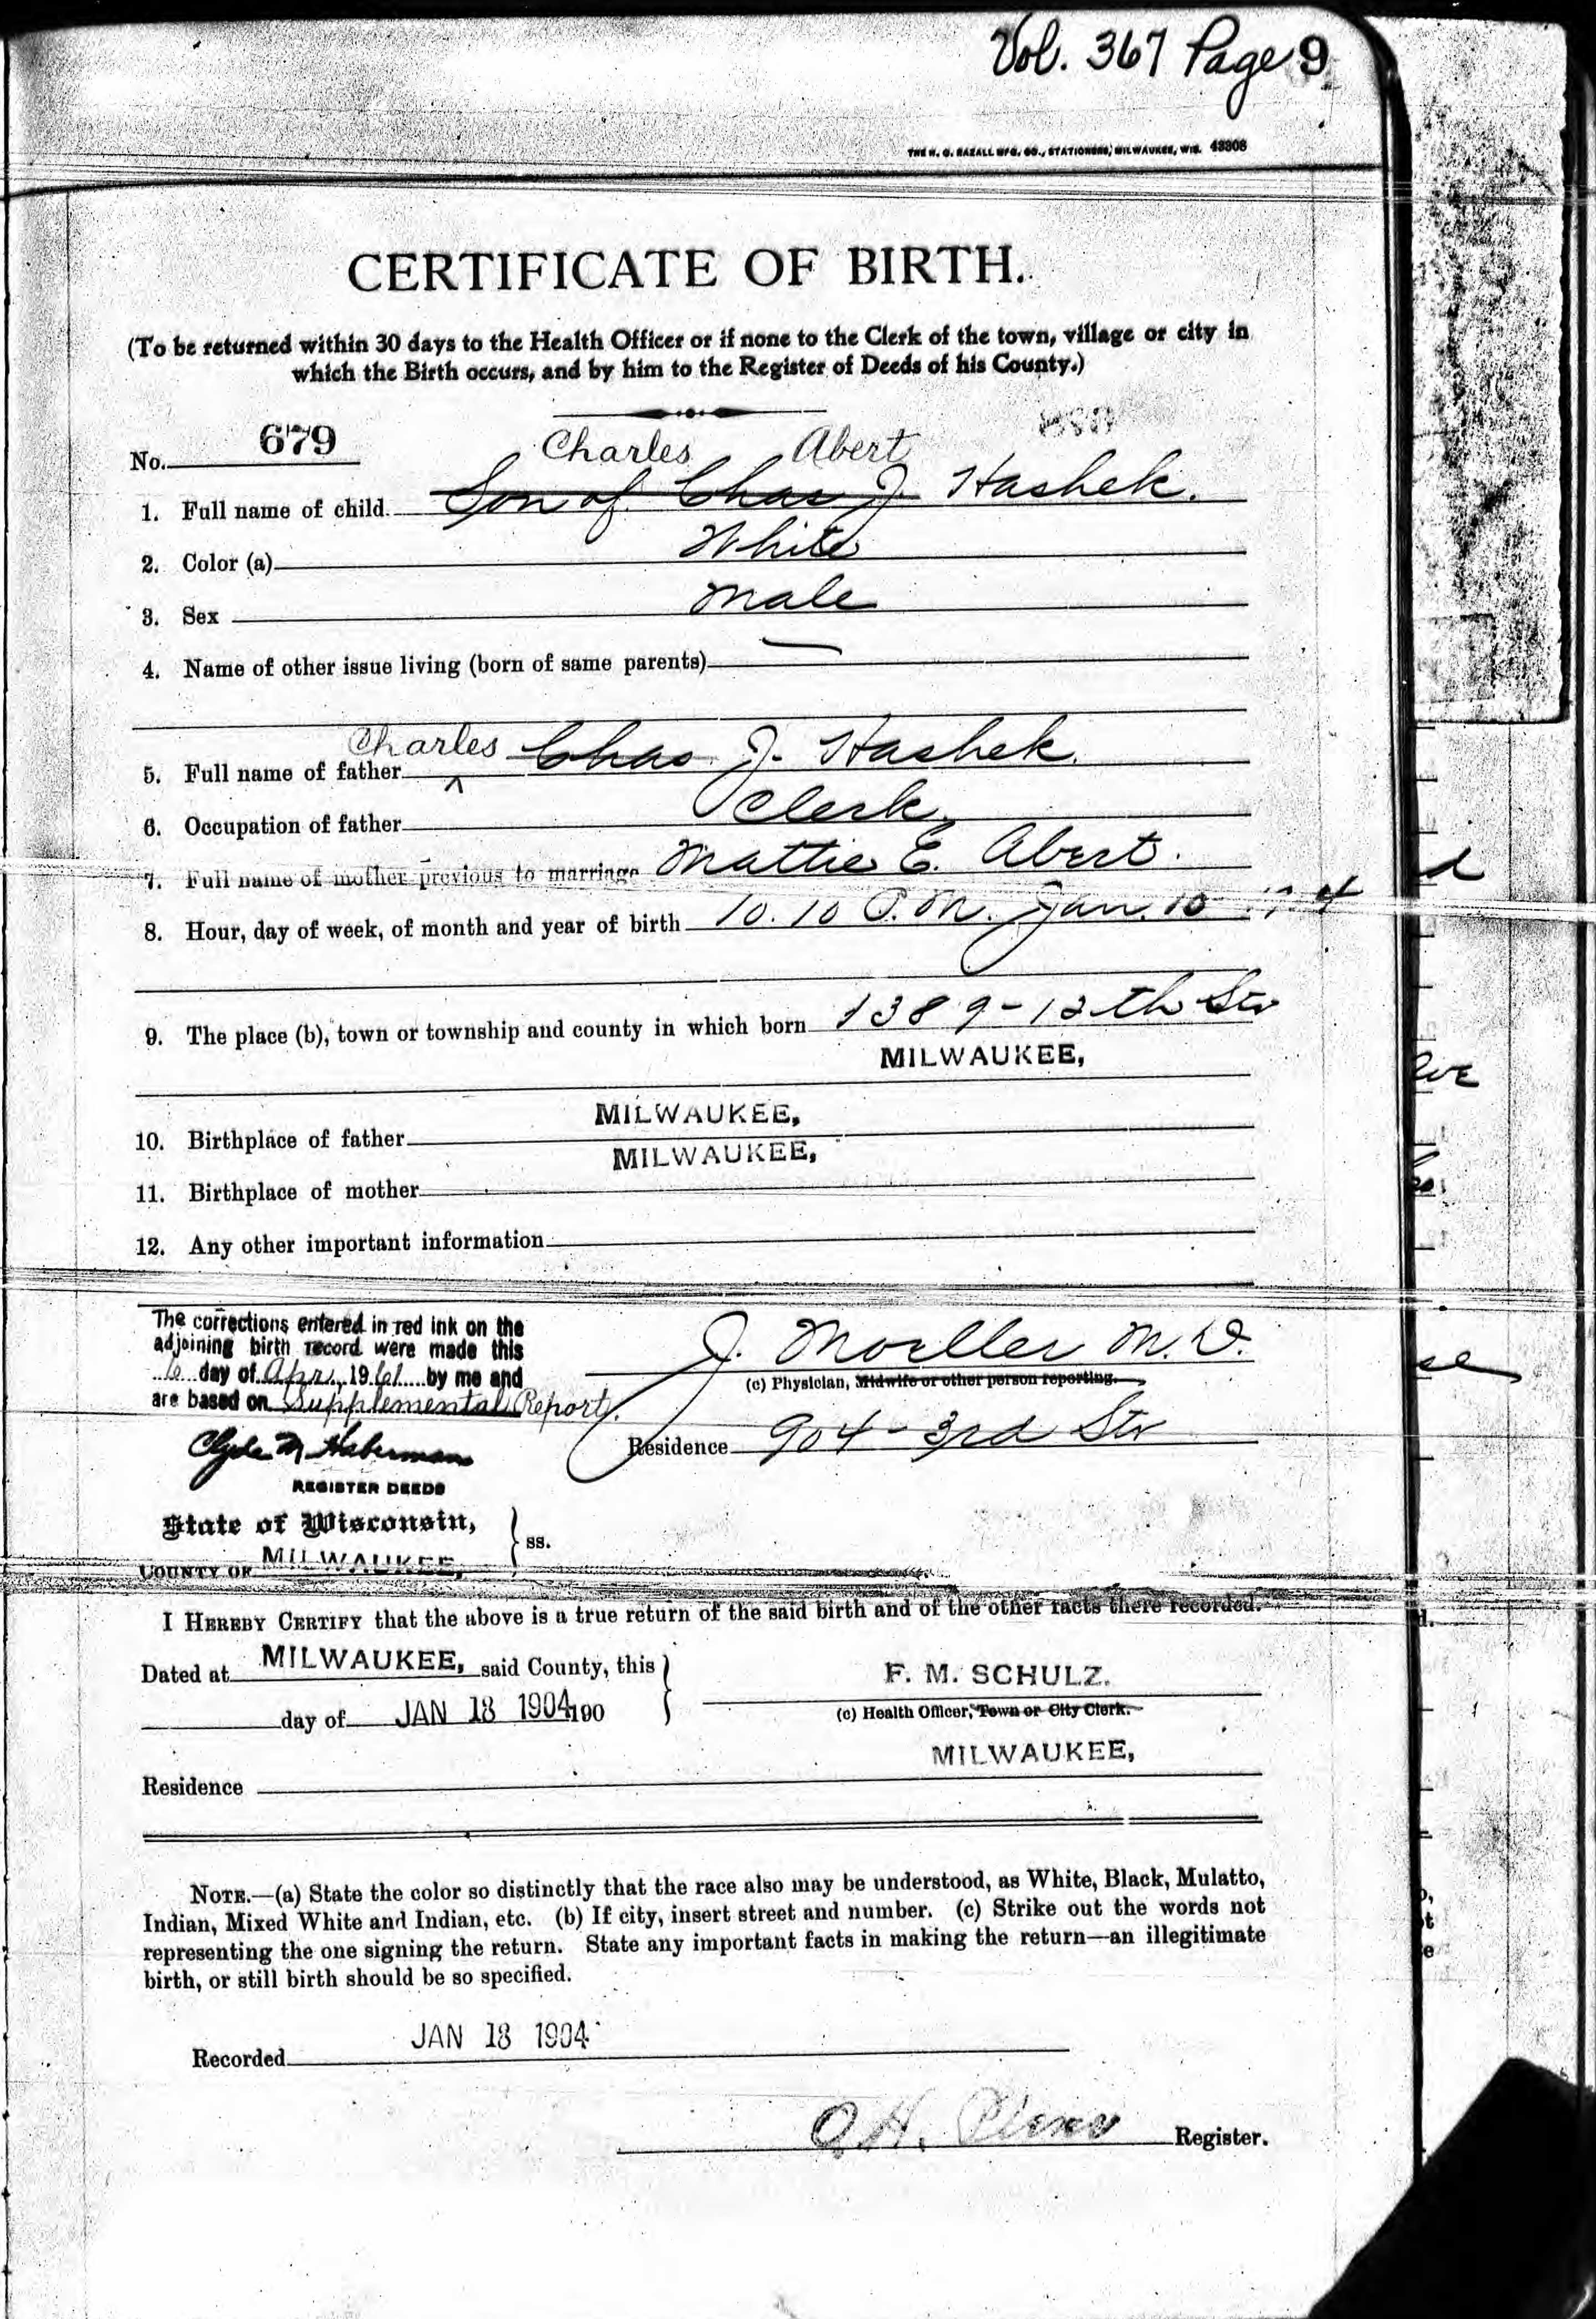 Vol. 367 Page 9
THE H. G. RAZALL MFG. CO., STATIONERS, MILWAUKEE, WIS. 43308
CERTIFICATE OF BIRTH.
(To be returned within 30 days to the Health Officer or if none to the Clerk of the town, village or city in
which the Birth occurs, and by him to the Register of Deeds of his County.)
No. 679
Charles Abert
1. Full name of child. Son of Chas J. Hashek.
2. Color (a) White
3. Sex Male
4. Name of other issue living (born of same parents) —
5. Full name of father Charles Chas J. Hashek.
6. Occupation of father Clerk
7. Full name of mother previous to marriage Mattie E. Abert.
8. Hour, day of week, of month and year of birth 10.10 P.M. Jan. 10
9. The place (b), town or township and county in which born 1389-12th Str
MILWAUKEE,
10. Birthplace of father MILWAUKEE,
11. Birthplace of mother MILWAUKEE,
12. Any other important information
The corrections entered in red ink on the
adjoining birth record were made this
6 day of Apr., 1961 by me and
are based on Supplemental Report.
Clyde M Haberman
REGISTER DEEDS
J. Moeller M.D.
(c) Physician, Midwife or other person reporting.
Residence 904-3rd Str
State of Wisconsin,
COUNTY OF MILWAUKEE, } ss.
I HEREBY CERTIFY that the above is a true return of the said birth and of the other facts there recorded.
Dated at MILWAUKEE, said County, this
day of JAN 18 1904 190
F. M. SCHULZ.
(c) Health Officer, Town or City Clerk.
MILWAUKEE,
Residence
NOTE.—(a) State the color so distinctly that the race also may be understood, as White, Black, Mulatto,
Indian, Mixed White and Indian, etc. (b) If city, insert street and number. (c) Strike out the words not
representing the one signing the return. State any important facts in making the return—an illegitimate
birth, or still birth should be so specified.
Recorded JAN 18 1904
Register.